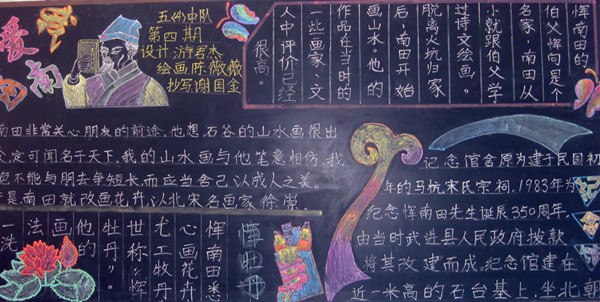 爱
南
五(4)中队
第四期
设计:游君杰
绘画:陈薇薇
抄写:谢国金
恽南田的
伯父恽向是个
名家,南田从
小就跟伯父学
过诗文绘画。
脱离火坑归家
后,南田开始
画山水。他的
作品在当时的
一些画家、文
人中评价已经
很高。
南田非常关心朋友的前途,他想,石谷的山水画很出
众,定可闻名于天下,我的山水画与他笔意相仿,我
不能与朋友争短长,而应当舍己以成人之美。
是南田就改画花卉,以北宋名画家,徐常
恽牡丹
恽南田悉
心画牧丹
尤工牧丹
世称:"恽
牡丹?"
他的
画
法一洗
记念馆舍原为建于民国初
年的马杭宋氏宗祠,1983年为
纪念恽南田先生诞辰350周年,
由当时武进县人民政府拨款,
将其改建而成,纪念馆建在
近一米高的石台基上,坐北朝